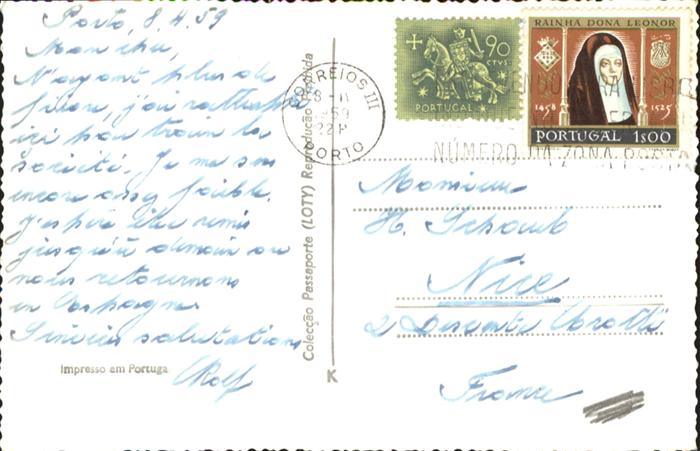 Porto, 8.4.59
Mon cher,
N'ayant plus de
fièvre, j'ai rattrapé
ici par train la
société. Je me sens
encore assez faible.
J'espère être remis
jusqu'à demain où
nous retournons
en Espagne.
Sincères salutations
Rolf
Impresso em Portugal
Colecção Passaporte (LOTY) Reprodução
K
90
CTVS.
PORTUGAL
RAINHA DONA LEONOR
1458
1525
PORTUGAL 1$00
CORREIOS III
1959
22 H
PORTO
NÚMERO DA ZONA
Monsieur
H. Schaub
Nice
2 Descente
France